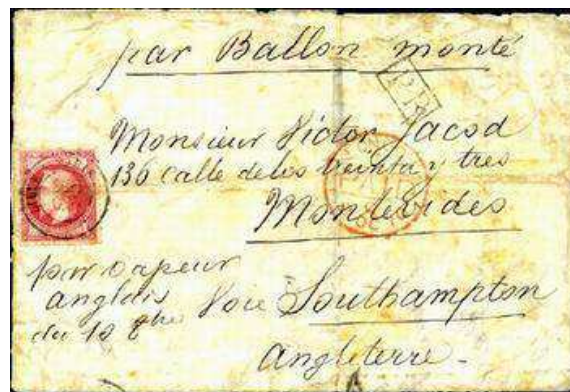 par Ballon monté
P.P.
Monsieur Victor Jacod
136 Calle de los treinta y tres
Montevideo
par vapeur
anglais
du 10 8bre
Voie Southampton
Angleterre -